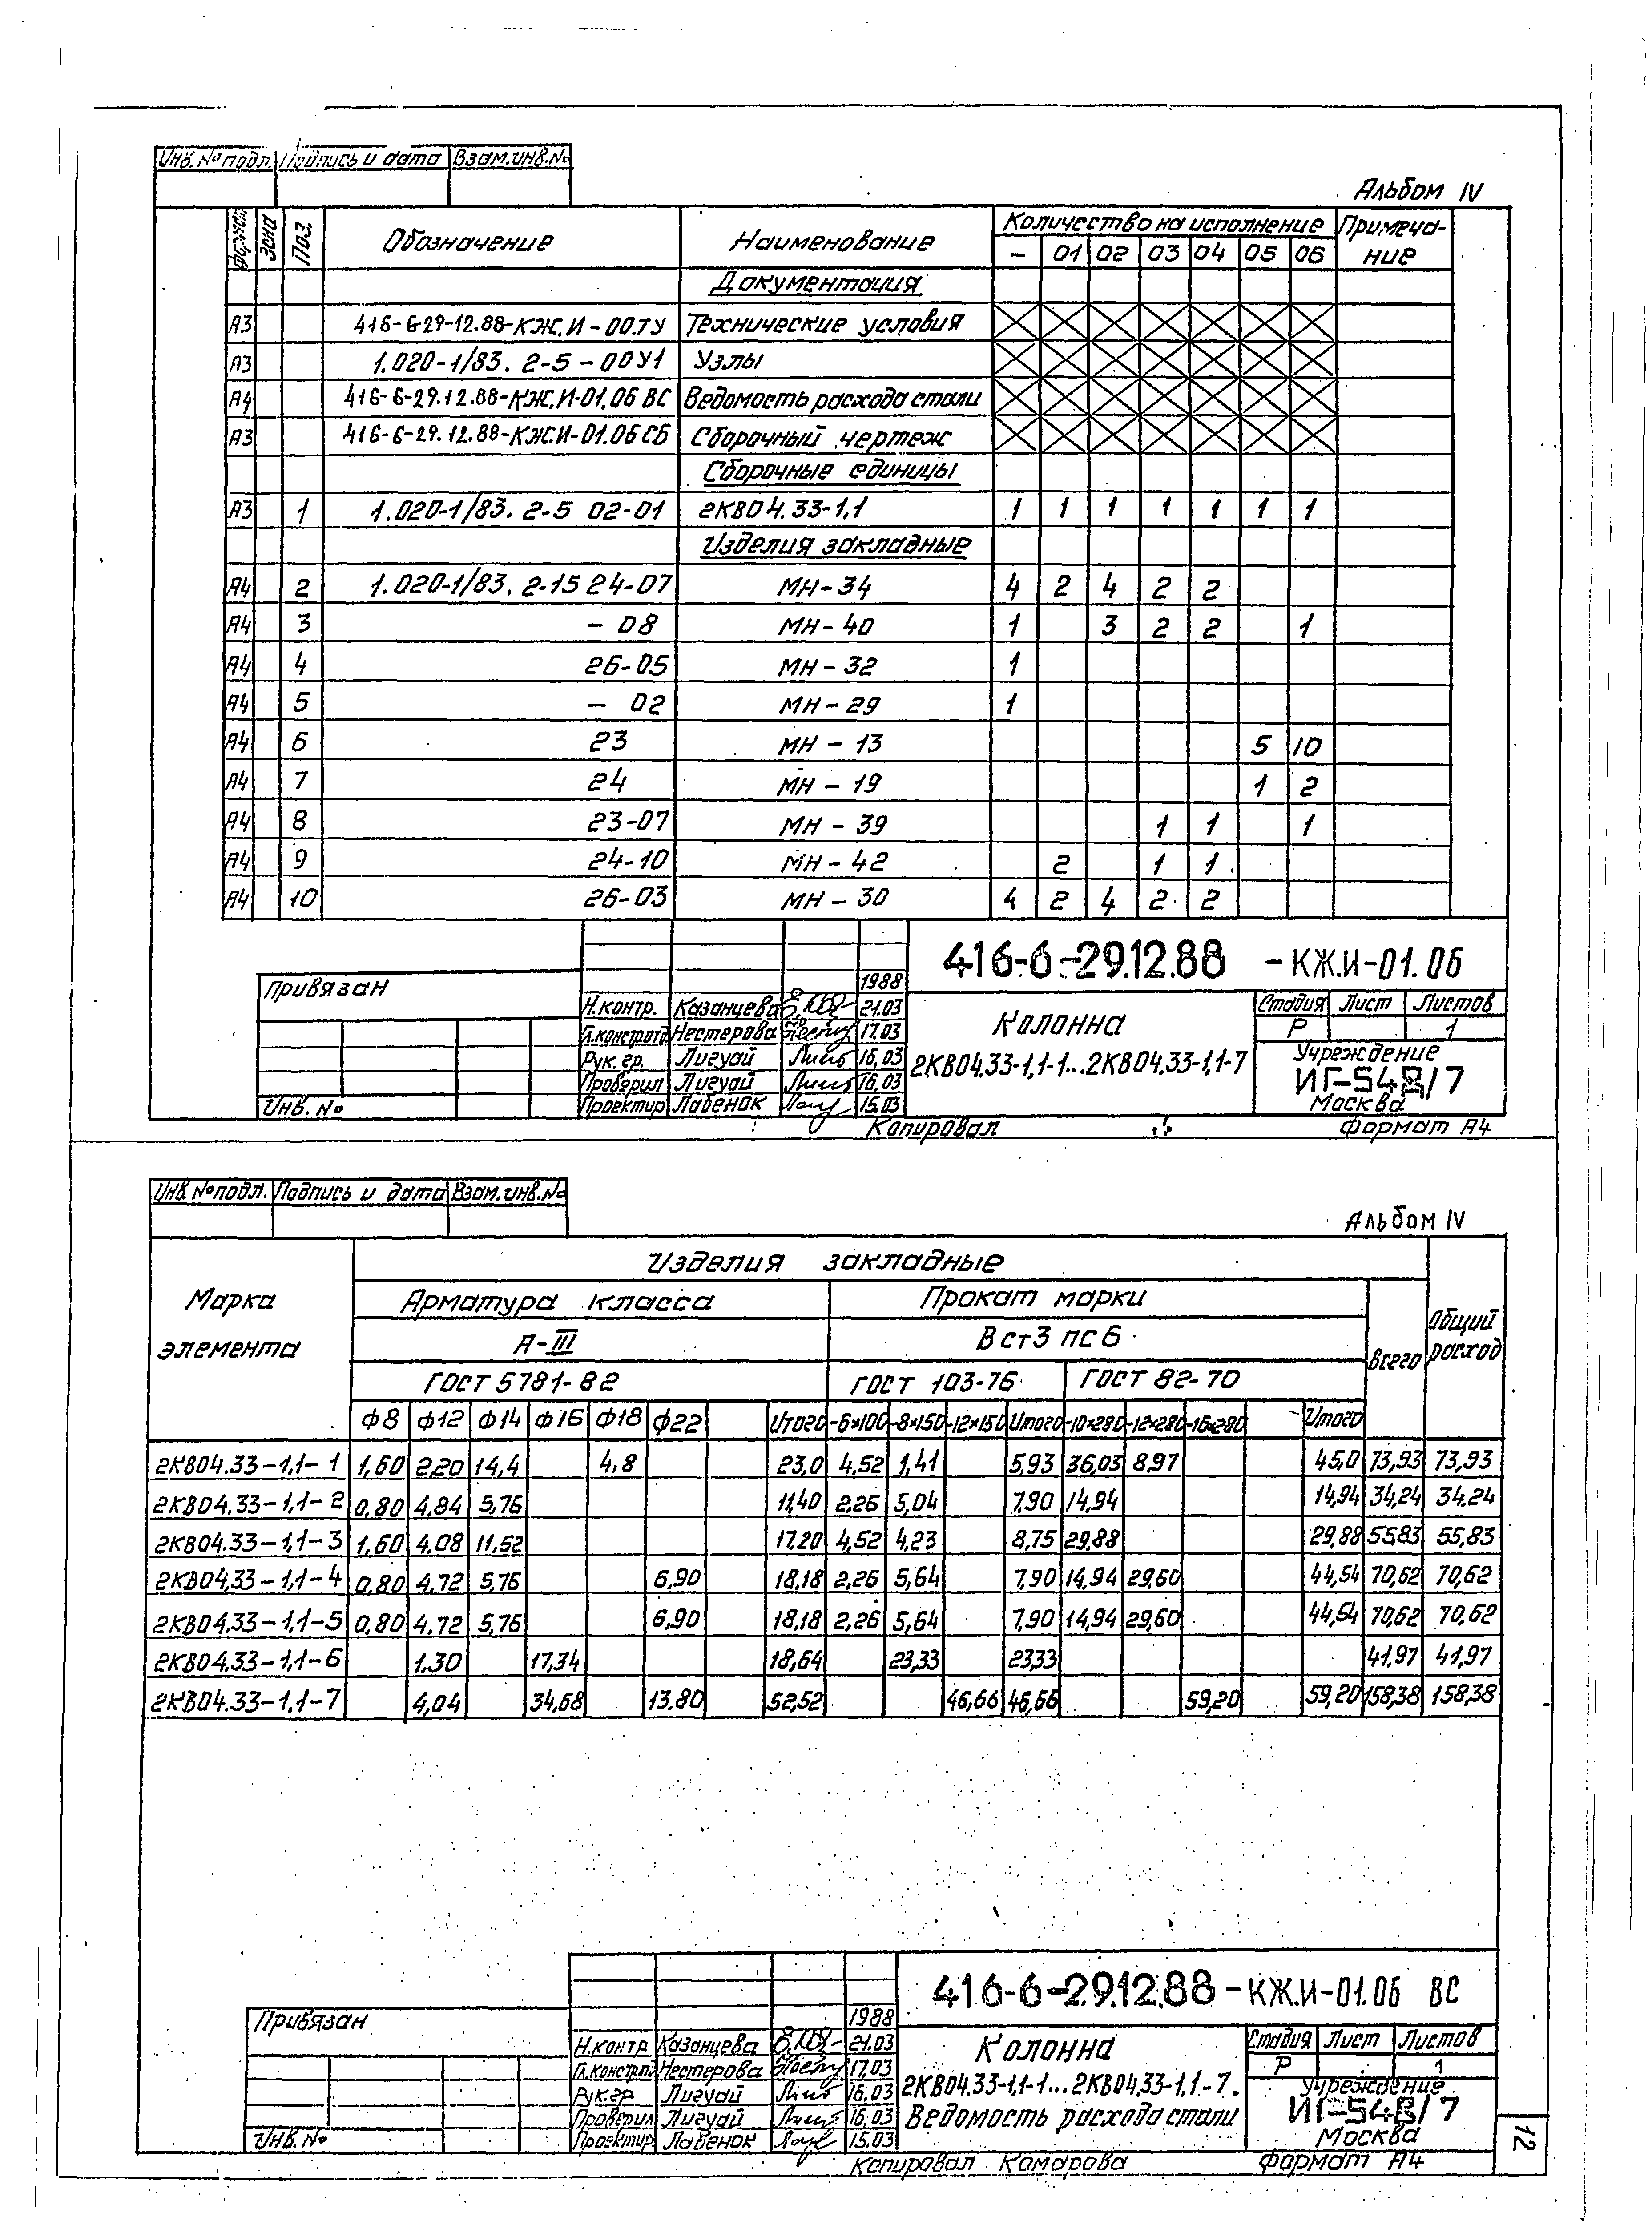 Инв. № подл. Подпись и дата Взам. инв. №
Альбом IV
Формат Зона Поз. Обозначение Наименование Количество на исполнение Примеча-ние
– 01 02 03 04 05 06
Документация
А3 416-6-29-12.88-КЖ.И-00.ТУ Технические условия
А3 1.020-1/83. 2-5-00У1 Узлы
А4 416-6-29.12.88-КЖ.И-01.06 ВС Ведомость расхода стали
А3 416-6-29.12.88-КЖ.И-01.06 СБ Сборочный чертеж
Сборочные единицы
А3 1 1.020-1/83. 2-5 02-01 2КВ04.33-1,1 1 1 1 1 1 1 1
Изделия закладные
А4 2 1.020-1/83. 2-15 24-07 МН-34 4 2 4 2 2
А4 3 - 08 МН-40 1 3 2 2 1
А4 4 26-05 МН-32 1
А4 5 - 02 МН-29 1
А4 6 23 МН-13 5 10
А4 7 24 МН-19 1 2
А4 8 23-07 МН-39 1 1 1
А4 9 24-10 МН-42 2 1 1
А4 10 26-03 МН-30 4 2 4 2 2
416-6-29.12.88 -КЖ.И-01.06
Привязан
1988
Н.контр. Казанцева 21.03
Гл.констр.отд Нестерова 17.03
Рук. гр. Лигуай 16.03
Проверил Лигуай 16.03
Проектир Лабенок 15.03
Инв. №
Колонна
2КВ04.33-1,1-1...2КВ04.33-1,1-7
Стадия Лист Листов
Р 1
Учреждение
ИГ-548/7
Москва
Копировал Формат А4
Инв. № подл. Подпись и дата Взам. инв. №
Альбом IV
Марка элемента Изделия закладные Общий расход
Арматура класса Прокат марки Всего
А-III Вст3 пс6
ГОСТ 5781-82 ГОСТ 103-76 ГОСТ 82-70
Ф8 Ф12 Ф14 Ф16 Ф18 Ф22 Итого -6×100 -8×150 -12×150 Итого -10×280 -12×280 -16×280 Итого
2КВ04.33-1,1-1 1,60 2,20 14,4 4,8 23,0 4,52 1,41 5,93 36,03 8,97 45,0 73,93 73,93
2КВ04.33-1,1-2 0,80 4,84 5,76 11,40 2,26 5,04 7,90 14,94 14,94 34,24 34,24
2КВ04.33-1,1-3 1,60 4,08 11,52 17,20 4,52 4,23 8,75 29,88 29,88 55,83 55,83
2КВ04.33-1,1-4 0,80 4,72 5,76 6,90 18,18 2,26 5,64 7,90 14,94 29,60 44,54 70,62 70,62
2КВ04.33-1,1-5 0,80 4,72 5,76 6,90 18,18 2,26 5,64 7,90 14,94 29,60 44,54 70,62 70,62
2КВ04.33-1,1-6 1,30 17,34 18,64 23,33 23,33 41,97 41,97
2КВ04.33-1,1-7 4,04 34,68 13,80 52,52 46,66 46,66 59,20 59,20 158,38 158,38
416-6-29.12.88-КЖ.И-01.06 ВС
Привязан
1988
Н.контр Казанцева 21.03
Гл.констр.отд Нестерова 17.03
Рук.гр Лигуай 16.03
Проверил Лигуай 16.03
Проектир. Лабенок 15.03
Инв. №
Колонна
2КВ04.33-1,1-1...2КВ04.33-1,1-7.
Ведомость расхода стали
Стадия Лист Листов
Р 1
Учреждение
ИГ-548/7
Москва
12
Копировал Комарова Формат А4